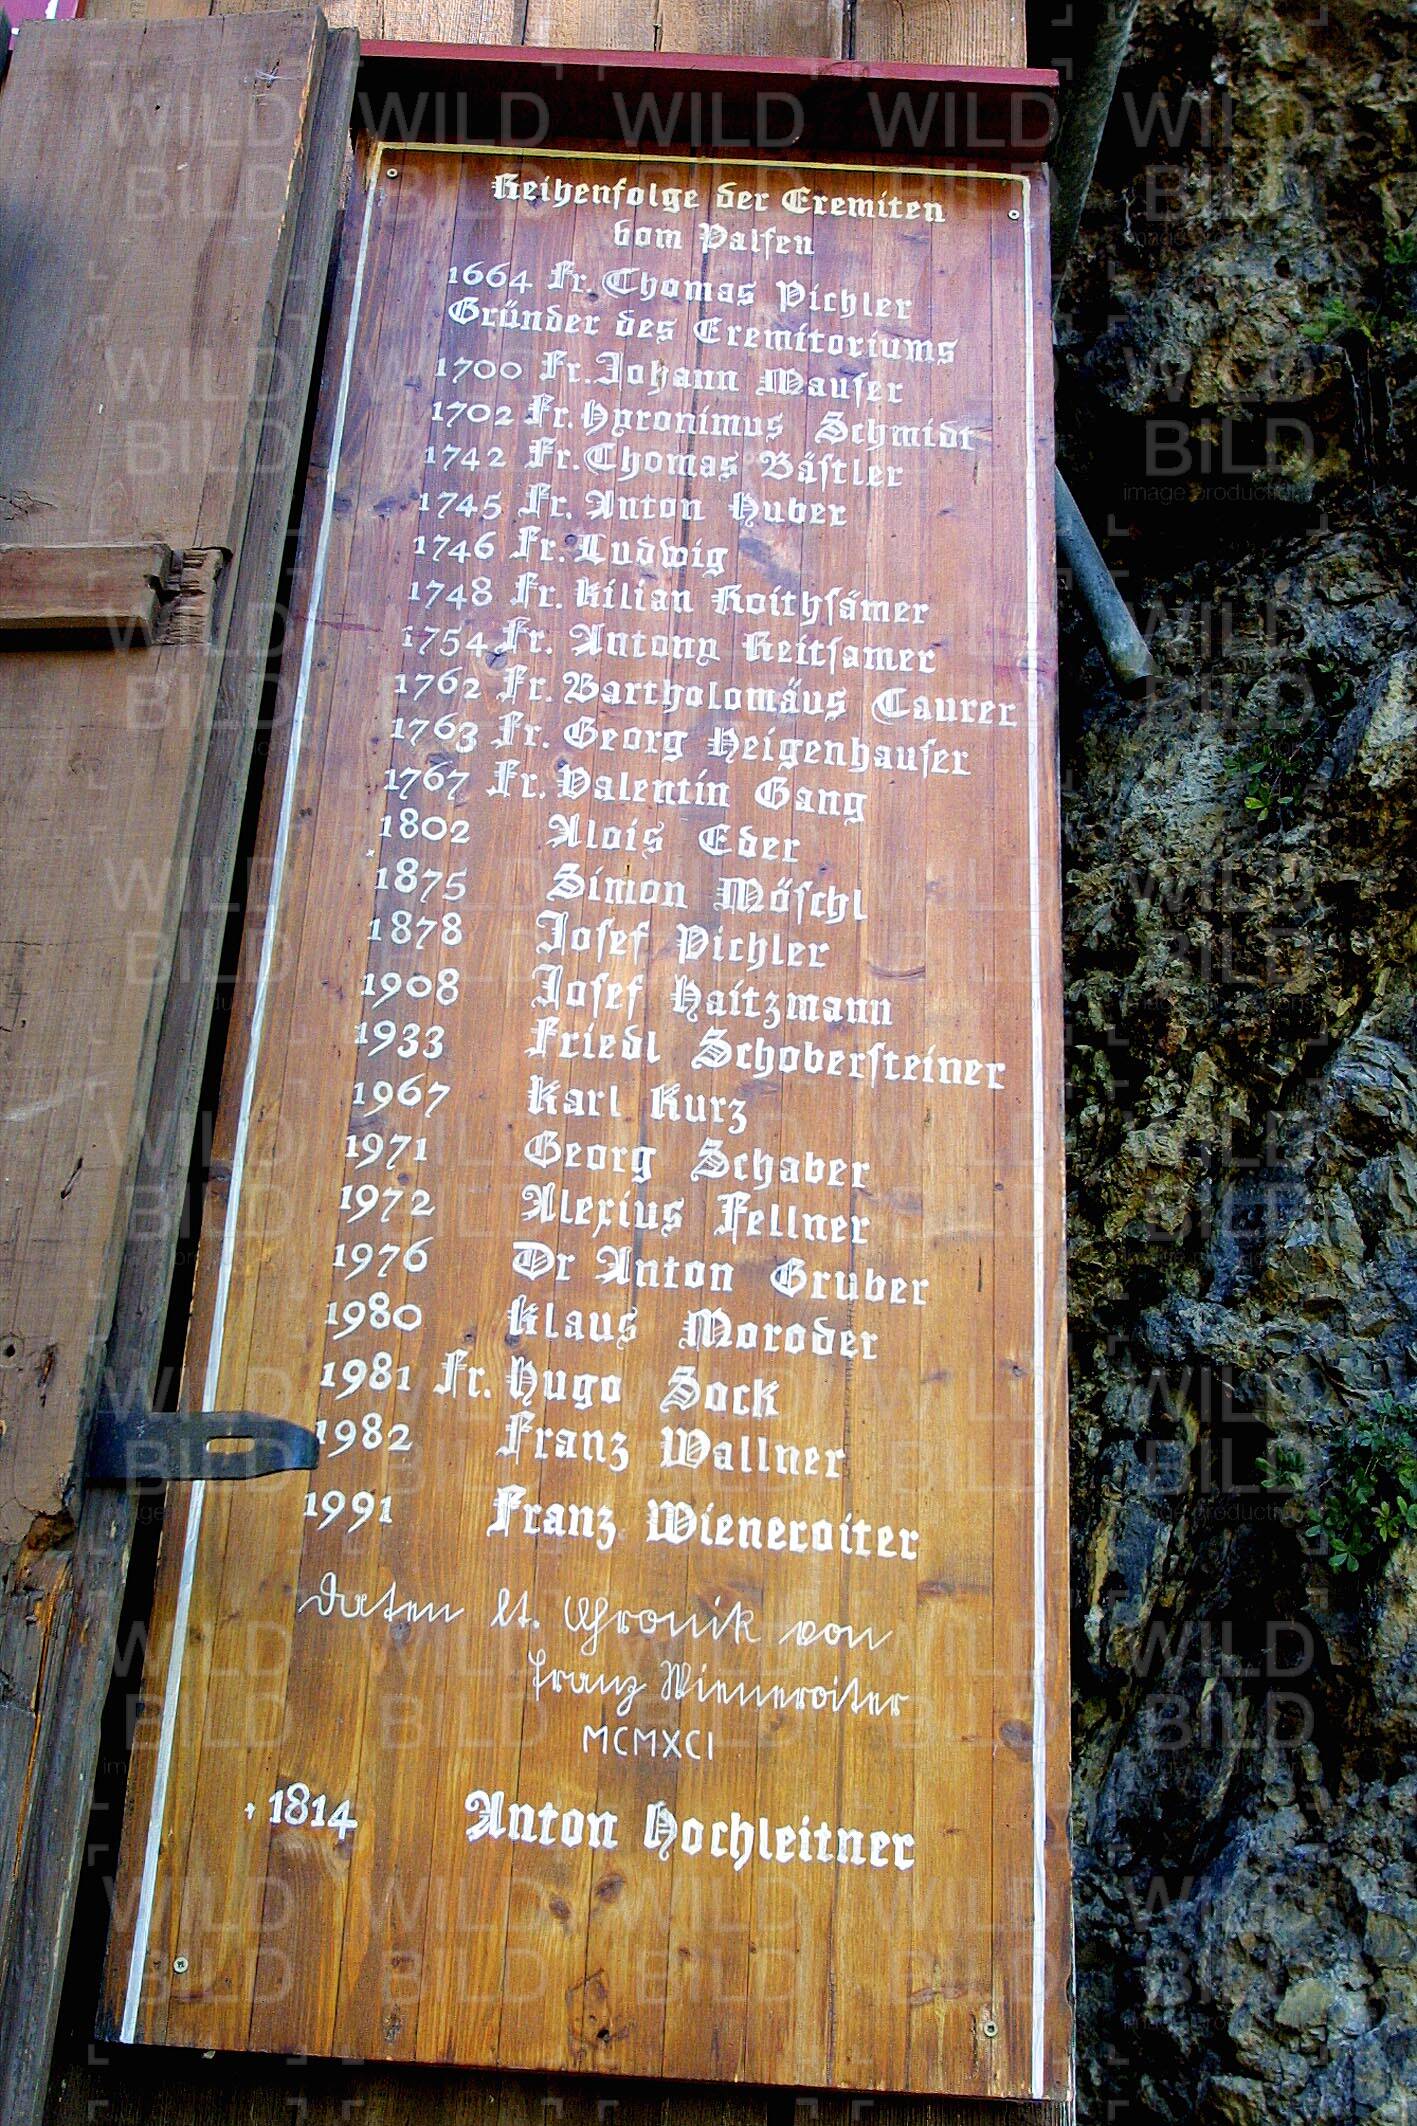 Reihenfolge der Eremiten
vom Palfen
1664 Fr. Thomas Pichler
Gründer des Eremitoriums
1700 Fr. Johann Mauser
1702 Fr. Hyronimus Schmidt
1742 Fr. Thomas Bästler
1745 Fr. Anton Huber
1746 Fr. Ludwig
1748 Fr. Kilian Roithsämer
1754 Fr. Antony Reitsamer
1762 Fr. Bartholomäus Taurer
1763 Fr. Georg Heigenhauser
1767 Fr. Valentin Gang
1802 Alois Eder
1875 Simon Möschl
1878 Josef Pichler
1908 Josef Haitzmann
1933 Friedl Schobersteiner
1967 Karl Kurz
1971 Georg Schaber
1972 Alexius Fellner
1976 Dr Anton Gruber
1980 Klaus Moroder
1981 Fr. Hugo Sock
1982 Franz Wallner
1991 Franz Wieneroiter
Daten lt. Chronik von
Franz Wieneroiter
MCMXCI
+ 1814 Anton Hochleitner
WILD
BILD
image production